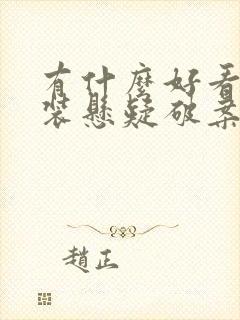 有什麼好看
裝懸疑破案
趙正